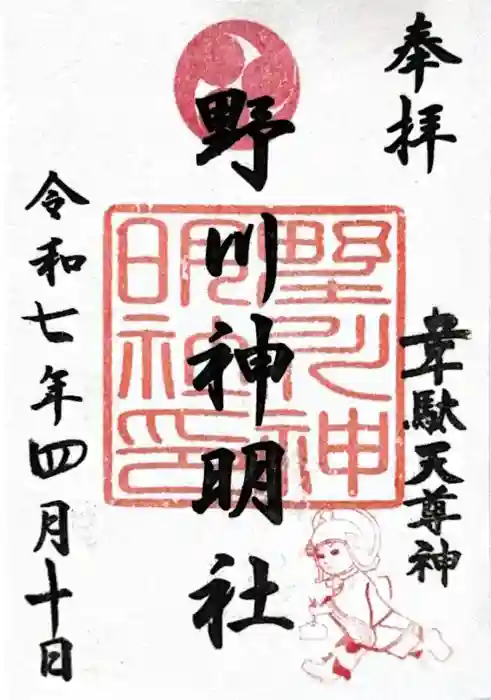 奉拝
韋駄天尊神
野川神明社
野川神
明神印
令和七年四月十日